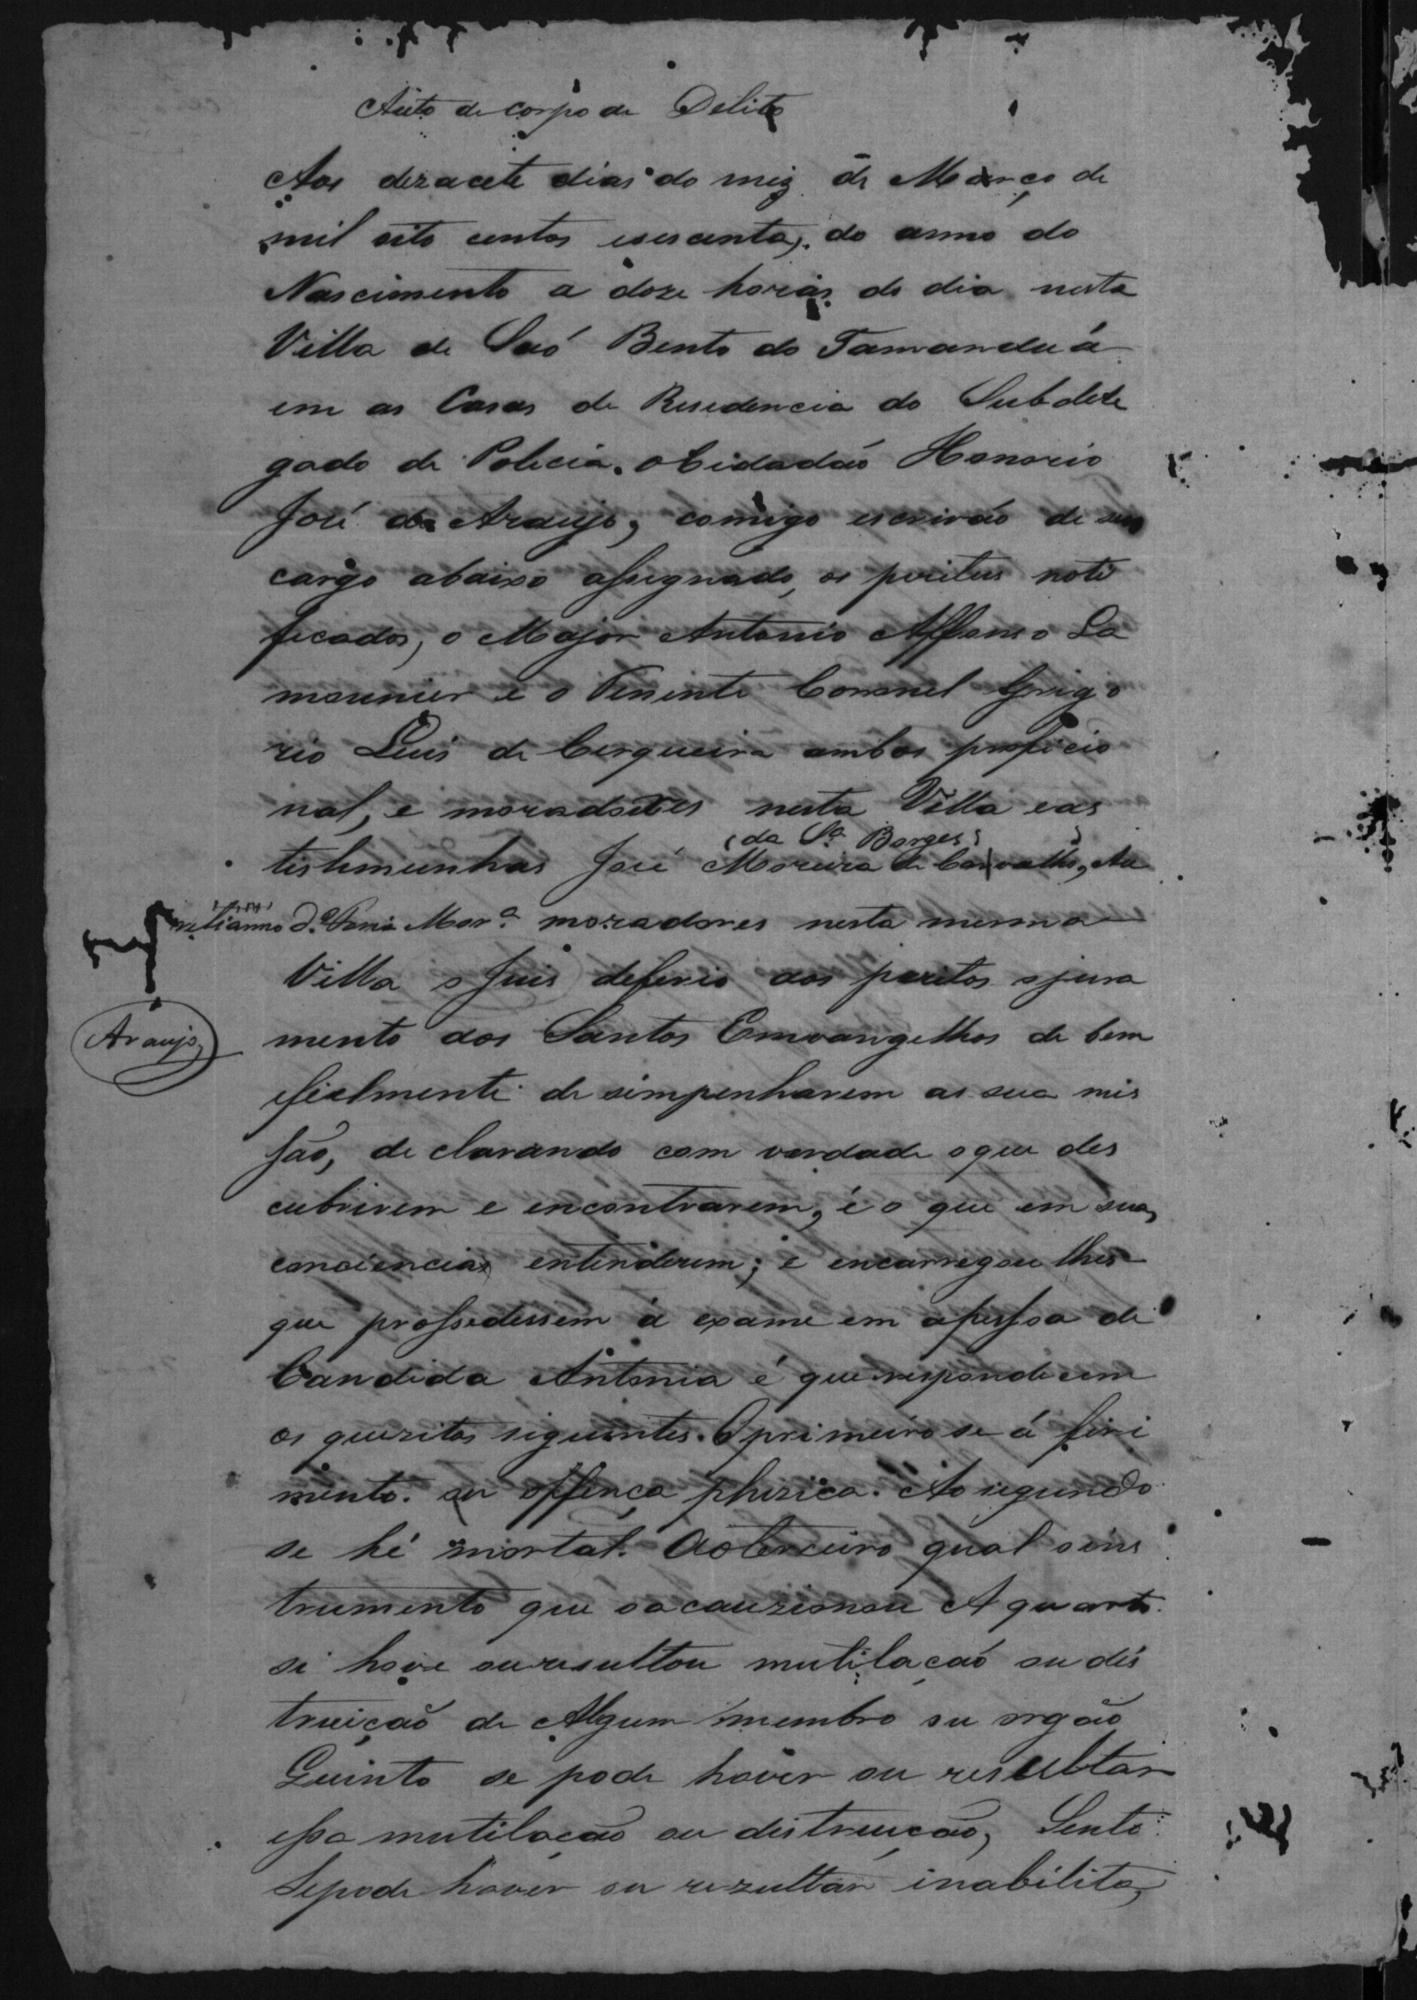 Auto de corpo de Delito
Aos dezacete dias do mez de Março de
mil oito centos esecenta, do anno do
Nascimento a doze horas do dia nesta
Villa de Saó Bento do Tamanduá
em as Casas de Residencia do Subdele
gado de Policia, o Cidadaó Honorio
José de Araujo, comigo escrivaó de seu
cargo abaixo assignado, os peritus noti
ficados, o Major Antonio Affonso La
mounier e o Tenente Coronel Grigo
rio Luis de Cerqueira ambos proficio
nal, e moradores nesta Villa eas
da Sª Borges
testemunhas José Moreira de Carvalho, Au
relianno d. Morª moradores nesta mesma
Villa o Juis deferio aos peritos o jura
Araujo
mento dos Santos Emvangelhos de bem
efielmente de simpenharem as sua mis
são, de clarando com verdade oque des
cubrirem e encontrarem, é o que em sua
conciencias entenderem; e encarregou lhes
que profsedessem á exame em apessoa de
Candida Antonia é que respondecem
os quezitos siguintes. O primeiro se á firi
mento. ou offença phizica. Ao segundo
se hé mortal. Aoterceiro qual oins
trumento que oocauzionou A quarto
si hove ouresultou mutilacaó ou dis
truiçaõ de Algum membro ou orgão
Quinto se pode haver ou resultar
essa mutilação ou distruicão, Sento
Sepode haver ou rezultar inabilita,